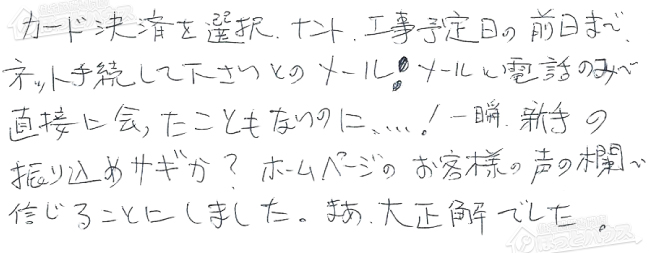 カード決済を選択、ナント、工事予定日の前日まで、
ネット手続して下さいとのメール！メールと電話のみで
直接に会ったこともないのに、…！一瞬、新手の
振り込めサギか？ホームページのお客様の声の欄で
信じることにしました。まあ、大正解でした。